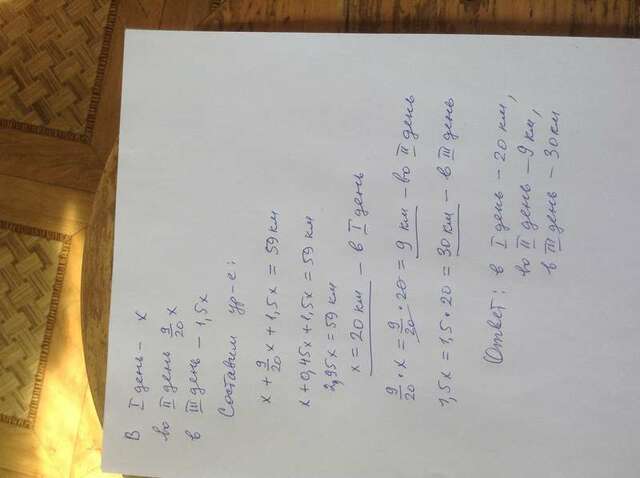 В I день – x
во II день 9/20 x
в III день – 1,5x
Составим ур-е:
x + 9/20 x + 1,5x = 59 км
x + 0,45x + 1,5x = 59 км
2,95x = 59 км
x = 20 км – в I день
9/20 · x = 9/20 · 20 = 9 км – во II день
1,5x = 1,5 · 20 = 30 км – в III день
Ответ: в I день – 20 км,
во II день – 9 км,
в III день – 30 км